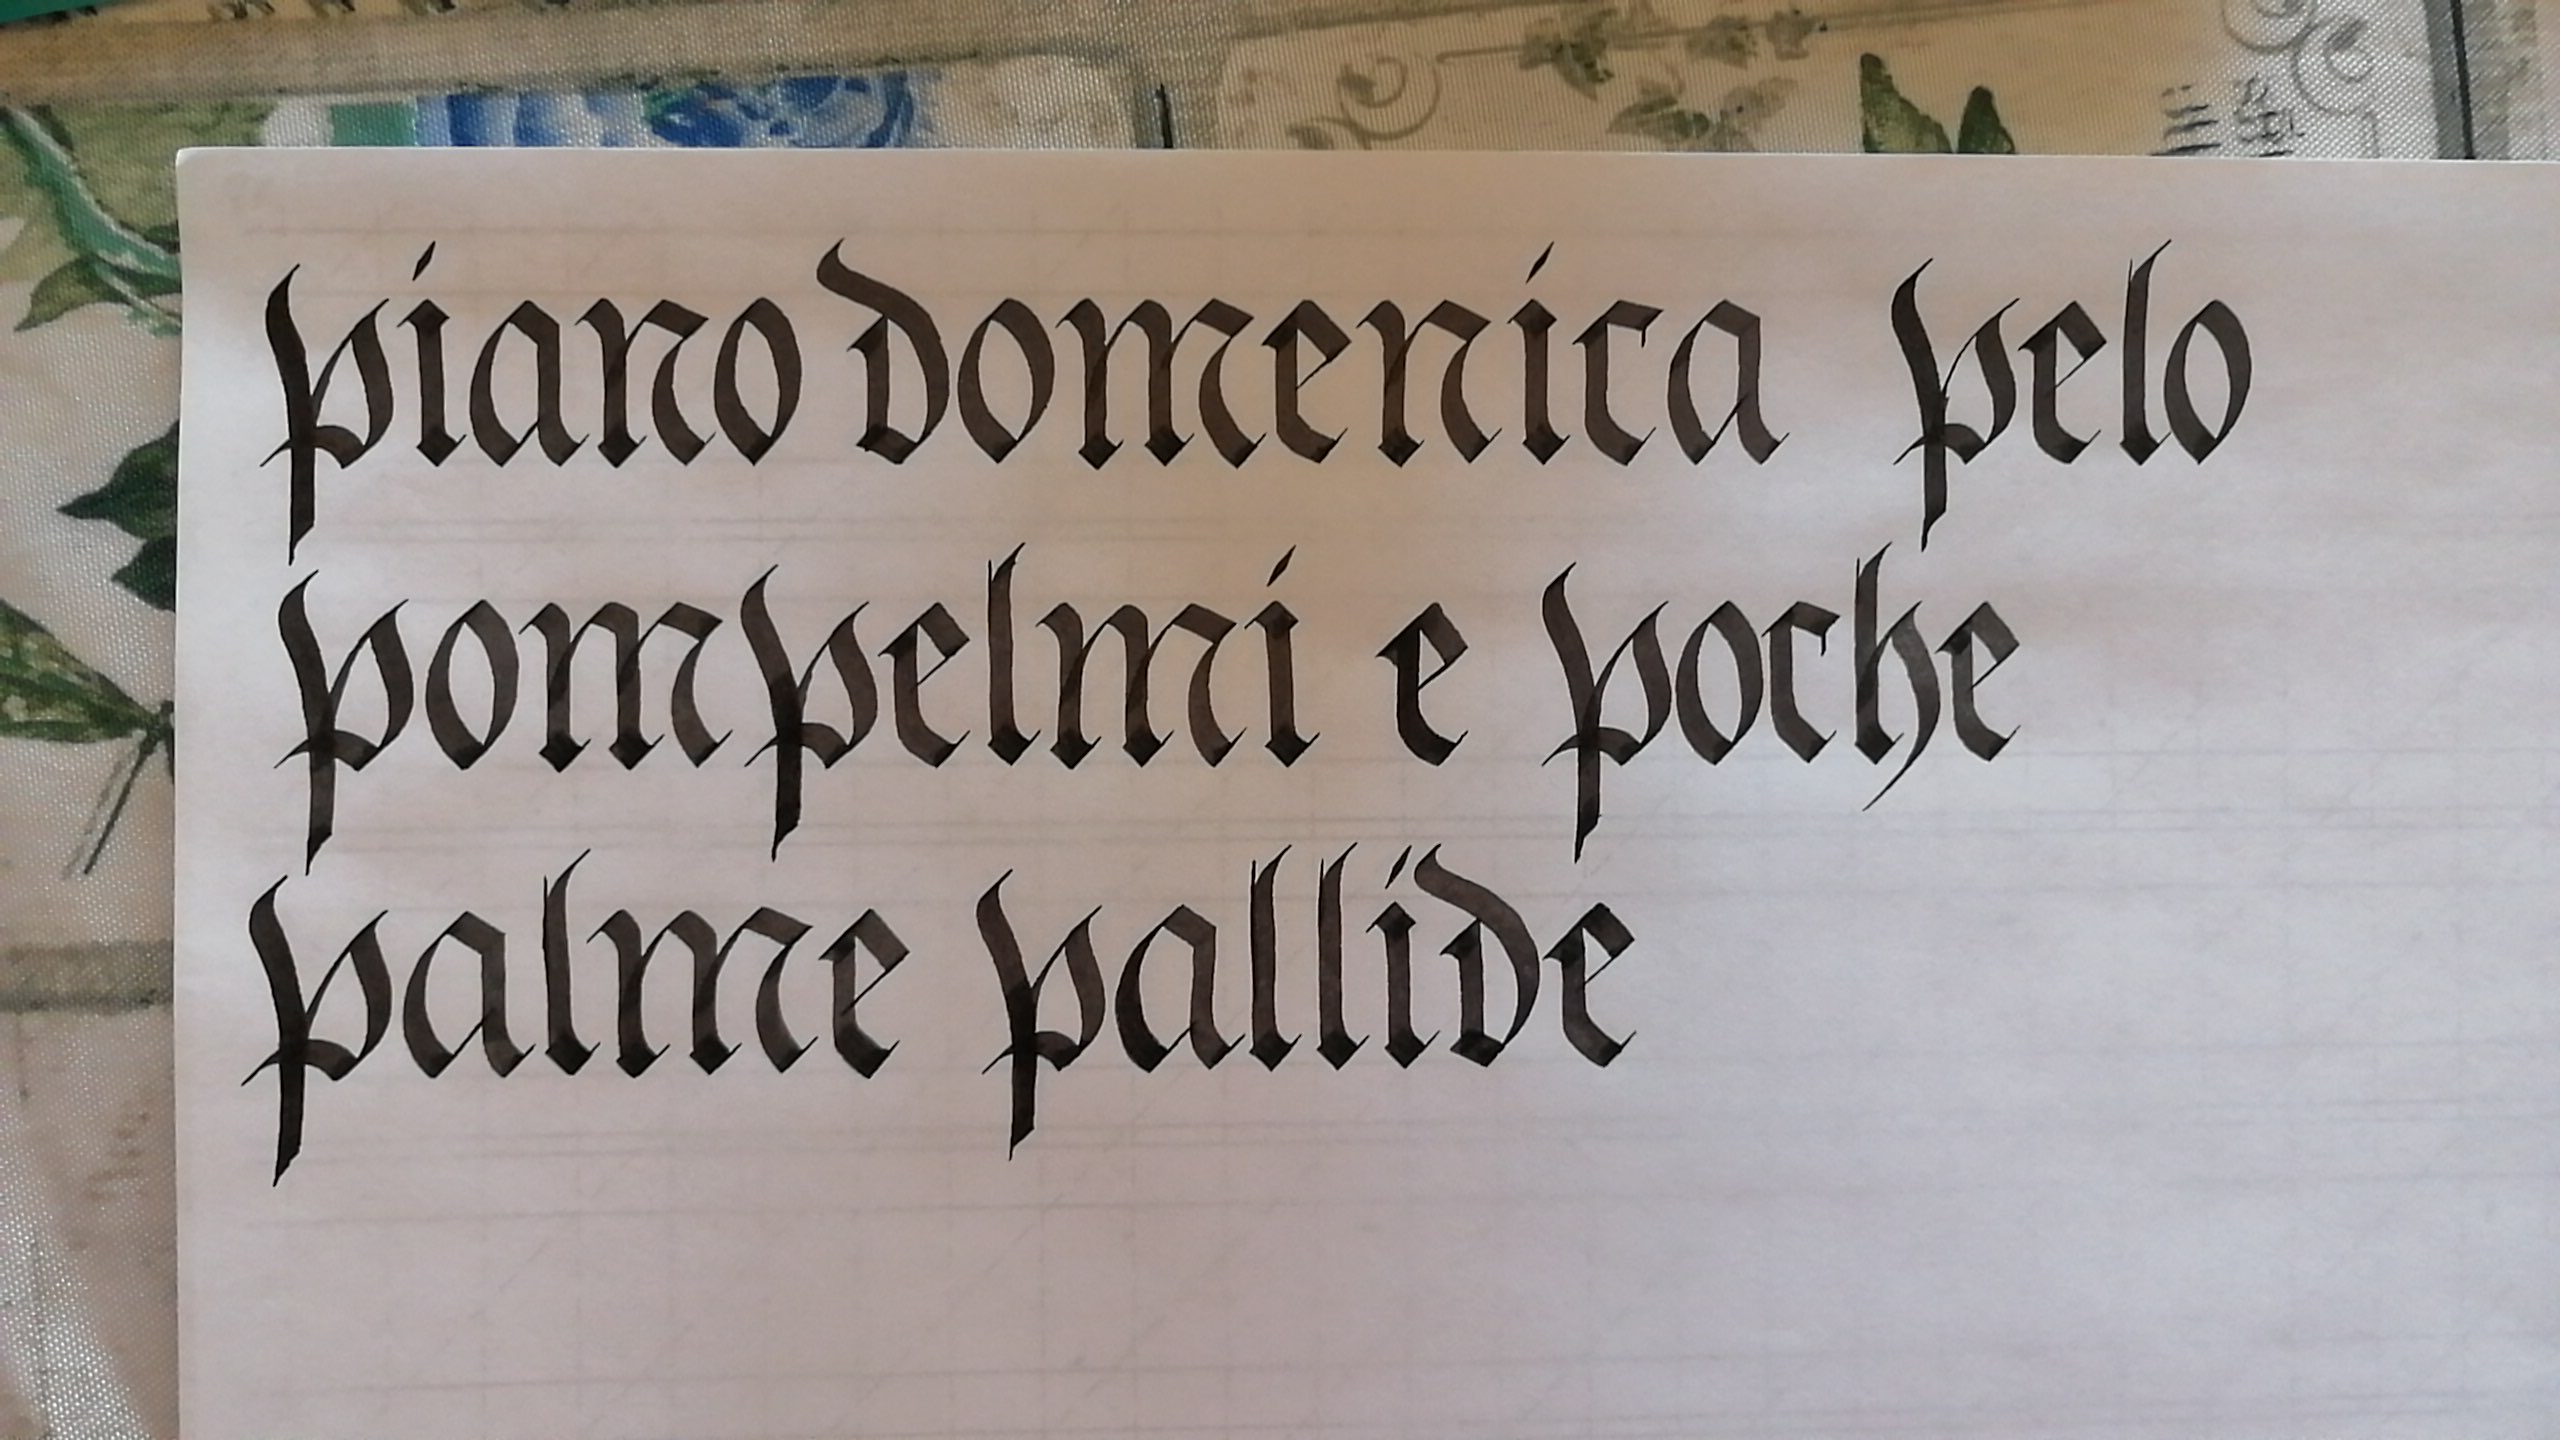 piano domenica pelo
pompelmi e poche
palme pallide